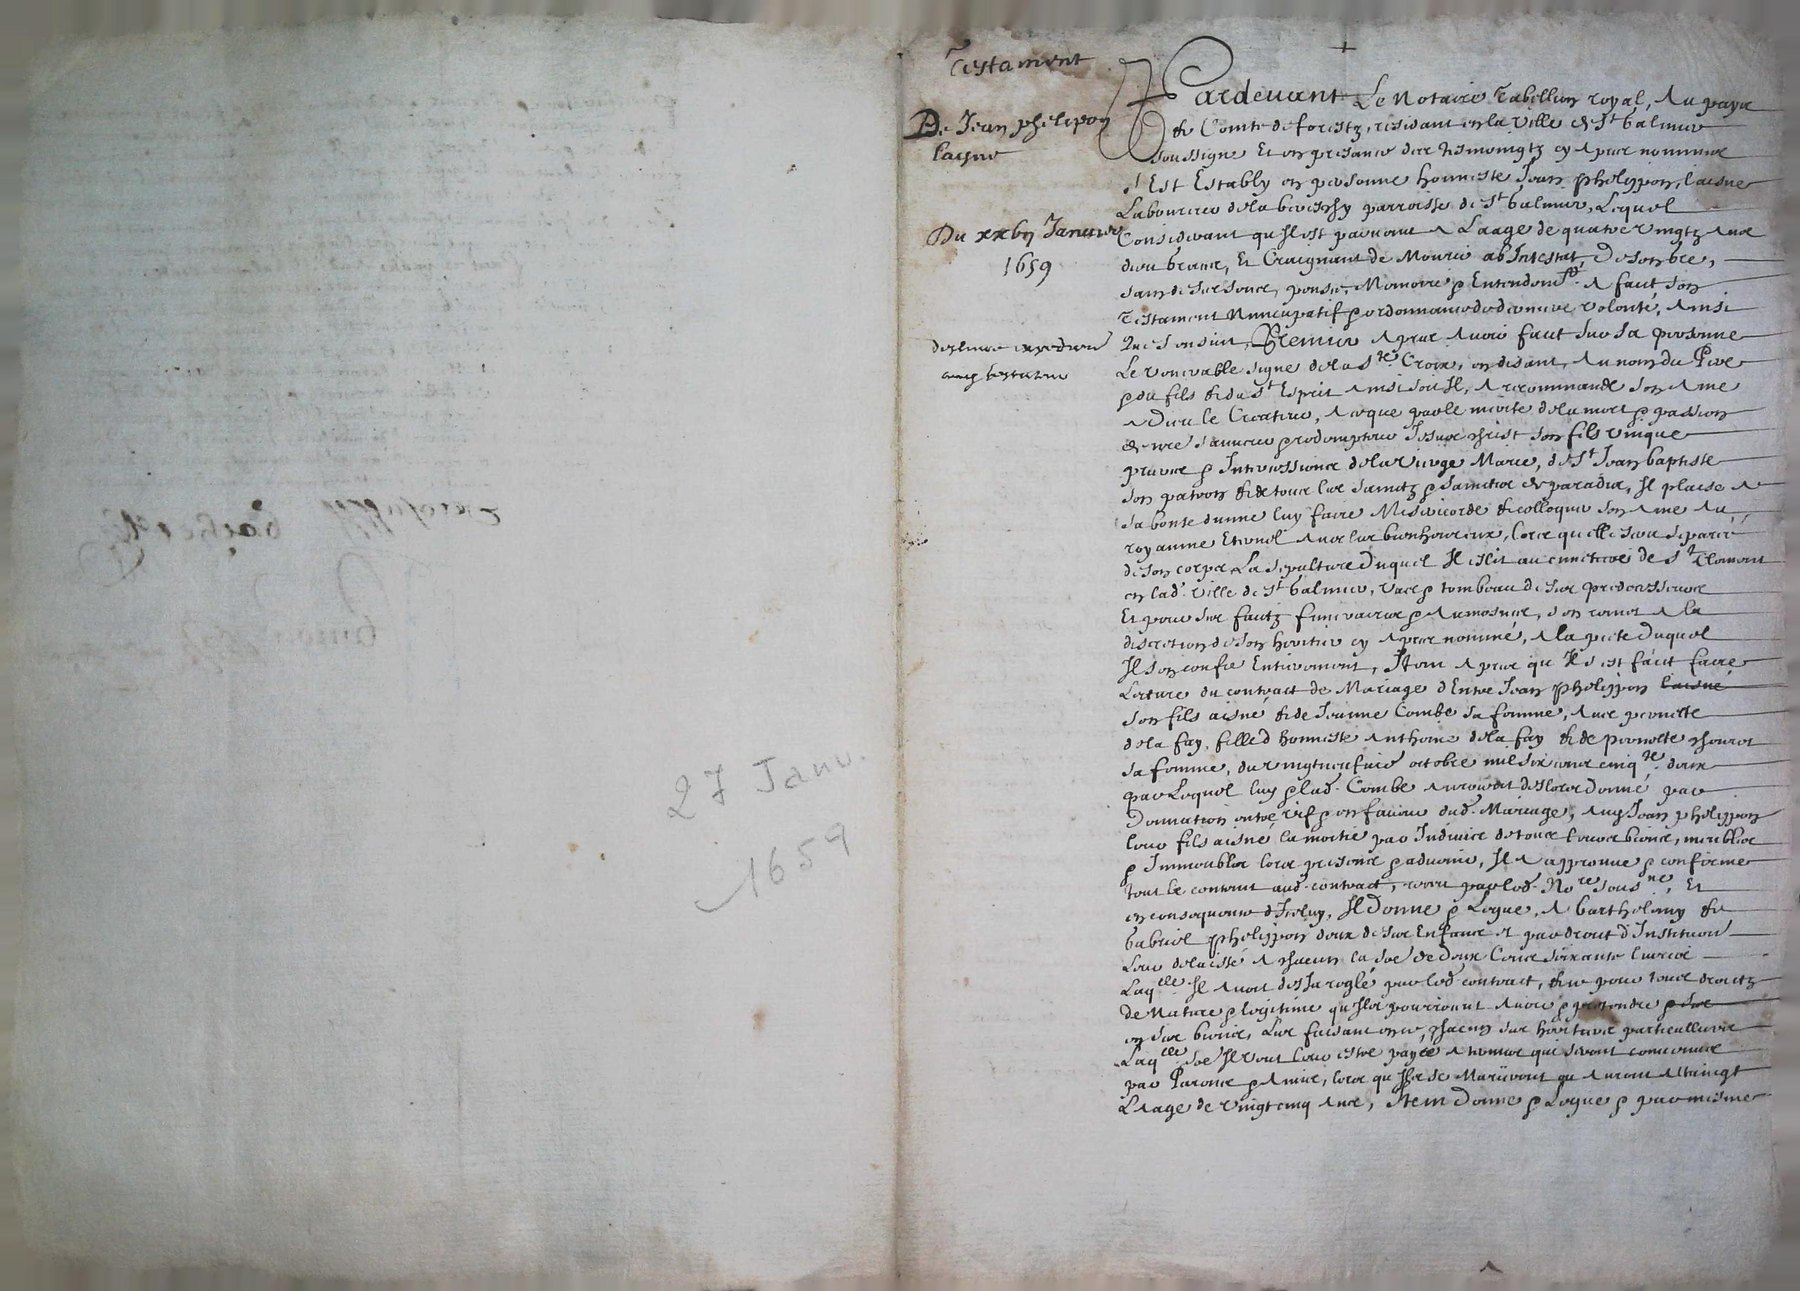 27 Janv.
1659
Testament
De Jean phelipon
laisne
Du xxvij Janvier
1659
Pardevant Le Notaire Tabellion royal, Au pays
de Comté de forestz, residant en la Ville de St Galmier
soussigne Et en presance des tesmoingtz cy apres nommes
s'Est Estably en personne honneste Jean phelippon, laisne
Laboureur de la parroisse de St Galmier, Lequel
Considerant qu'Il est parvenu A Laage de quatre vingtz Ans
ou environ, Et Craignant de Mourir abIntestat,
sain de ses sens, pensée, Memoire & Entendemt A faict son
Testament Nuncupatif & ordonnance de derniere volonté, Ainsi
Que s'ensuit, Premier Apres Avoir faict sur sa personne
Le venerable signe de la Ste Croix, en disant, Au nom du Pere
& du fils & du St Esprit Ainsi soit Il, A recommande son Ame
A Dieu le Createur, A ce que par le merite de la mort & passion
de nre Sauveur & redempteur Jesus christ son fils unique
prieres & Intercessions de la Vierge Marie, de St Jean baptiste
son patron & de tous les sainctz & sainctes de paradis, Il plaise A
sa bonte divine luy faire Misericorde & colloquer son Ame Au
royaume Eternel Avec les bienheureux, lors qu'elle sera separée
de son corps La sepulture Duquel Il eslit au cimetiere de St
en lad. ville de St Galmier, & tombeau de ses predecesseurs
Et pour ses faictz funeraires & Aumosnes, s'en remet A la
discretion de son heritier cy Apres nommé, A la pieté Duquel
Il s'en confie Entierement, Item Apres qu'Il s'est faict faire
Lecture du contract de Mariage d'Entre Jean phelippon laisné
son fils aisné & de Jeanne Combe sa femme, Avec pernette
de la fay, fille d'honneste Anthoine de la fay & de pernette
sa femme, du vingtneufvie octobre mil six cens cinqte deux
par Lequel luy & lad. Combe Auroient deslors Donné par
Donnation entre vif & en faveur dud. Mariage, Aud. Jean phelippon
leur fils aisné la moitié par Indivis de tous leurs biens, meubles
& Immeubles lors presens & advenir, Il A approuve & confirme
Tout le contenu aud. contract, receu par led. Nore sousne, Et
en consequence d'Iceluy, Il Donne & Legue, A barthelemy &
Gabriel phelippon deux de ses Enfans et par droict d'Institution
Leur delaisse A chacun la soe de deux Cens soixante livres
Laqlle Il Avoit desja reglé par led. contract, & ce pour tous droictz
de Nature & legitime qu'Ilz pourroient Avoir & pretendre
en ses biens, Les faisant en ce, chacun ses heritiers particulliers
Laqlle soe Il veut leur estre payée A termes qui seront convenus
par Parens & Amis, lors qu'Ilz se Marieront ou Auront Attaingt
L'aage de vingt cinq Ans, Item Donne & Legue & par mesme